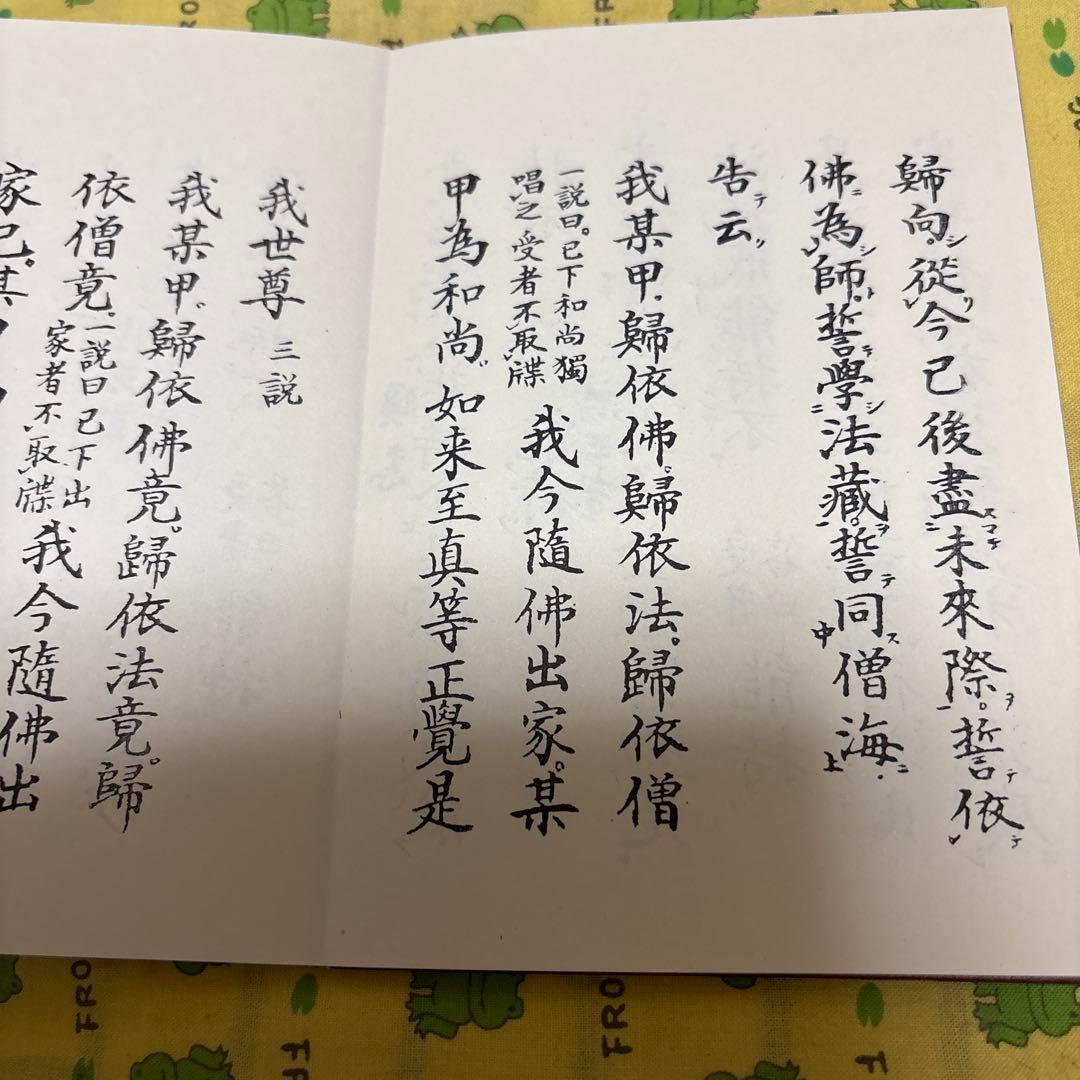 歸向。從今已後盡未來際。誓依
佛為師誓學法藏。誓同僧海
告云
我某甲。歸依佛。歸依法。歸依僧
一説曰。已下和尚獨
唱之受者不取牒
我今隨佛出家。某
甲為和尚。如来至真等正覺是
我世尊 三説
我某甲歸依佛竟。歸依法竟。歸
依僧竟。
一説曰已下出
家者不取牒
我今隨佛出
家已。某
FROG
FROG